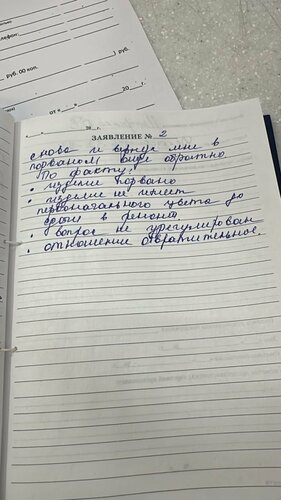 елефон:
) руб.
руб. 00 коп.
от «
20
г.
20 г.
ЗАЯВЛЕНИЕ № 2
снова и вернув мне в
порваном виде обратно.
По факту:
• изделие порвано
• изделие не имеет
первоначального цвета до
сдачи в ремонт
• вопрос не урегулирован
• отношение отвратительное.